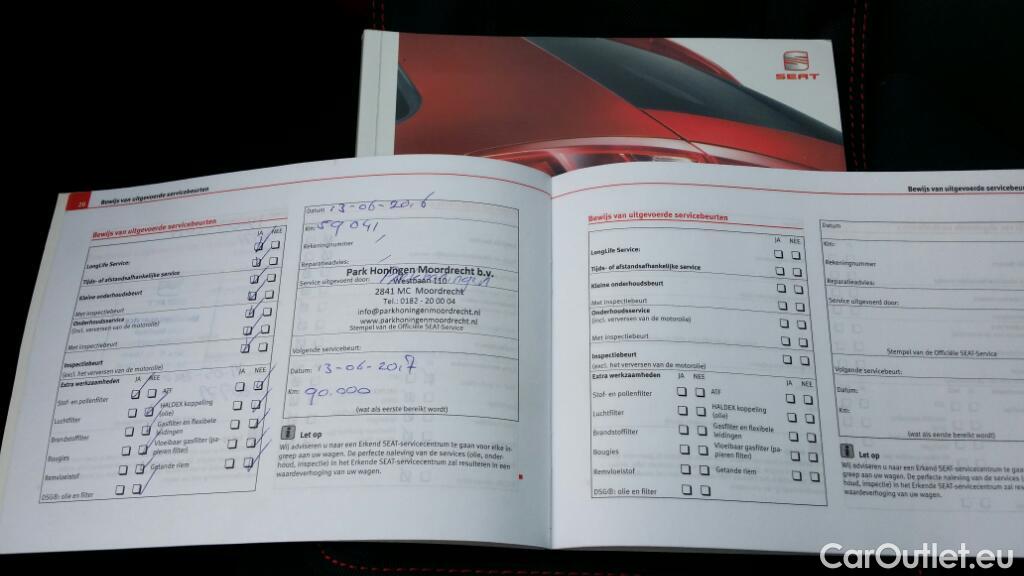 SEAT
26 Bewijs van uitgevoerde servicebeurten
Bewijs van uitgevoerde servicebeurten
JA NEE
LongLife Service:
Tijds- of afstandsafhankelijke service
Kleine onderhoudsbeurt
Met inspectiebeurt
Onderhoudsservice
(incl. verversen van de motorolie)
Met inspectiebeurt
Inspectiebeurt
(excl. het verversen van de motorolie)
Extra werkzaamheden JA NEE JA NEE
Stof- en pollenfilter ATF
Luchtfilter HALDEX koppeling
(olie)
Brandstoffilter Gasfilter en flexibele
leidingen
Bougies Vloeibaar gasfilter (pa-
pieren filter)
Remvloeistof Getande riem
DSG®: olie en filter
Datum: 13-06-2016
Km: 59041
Rekeningnummer
Reparatieadvies:
Service uitgevoerd door:
Park Honingen Moordrecht b.v.
Westbaan 110
2841 MC Moordrecht
Tel.: 0182 - 20 00 04
info@parkhoningenmoordrecht.nl
www.parkhoningenmoordrecht.nl
Stempel van de Officiële SEAT-Service
Volgende servicebeurt:
Datum: 13-06-2017
Km: 90.000
(wat als eerste bereikt wordt)
Let op
Wij adviseren u naar een Erkend SEAT-servicecentrum te gaan voor elke in-
greep aan uw wagen. De perfecte naleving van de services (olie, onder-
houd, inspectie) in het Erkende SEAT-servicecentrum zal resulteren in een
waardeverhoging van uw wagen.
Bewijs van uitgevoerde servicebeu
Bewijs van uitgevoerde servicebeurten
JA NEE
LongLife Service:
Tijds- of afstandsafhankelijke service
Kleine onderhoudsbeurt
Met inspectiebeurt
Onderhoudsservice
(incl. verversen van de motorolie)
Met inspectiebeurt
Inspectiebeurt
(excl. het verversen van de motorolie)
Extra werkzaamheden JA NEE JA NEE
Stof- en pollenfilter ATF
Luchtfilter HALDEX koppeling
(olie)
Brandstoffilter Gasfilter en flexibele
leidingen
Bougies Vloeibaar gasfilter (pa-
pieren filter)
Remvloeistof Getande riem
DSG®: olie en filter
Datum
Km:
Rekeningnummer
Reparatieadvies:
Service uitgevoerd door:
Stempel van de Officiële SEAT-Service
Volgende servicebeurt:
Datum:
Km:
(wat als eerste bereikt wordt)
Let op
Wij adviseren u naar een Erkend SEAT-servicecentrum te gaan
greep aan uw wagen. De perfecte naleving van de services (
houd, inspectie) in het Erkende SEAT-servicecentrum zal res
waardeverhoging van uw wagen.
CarOutlet.eu